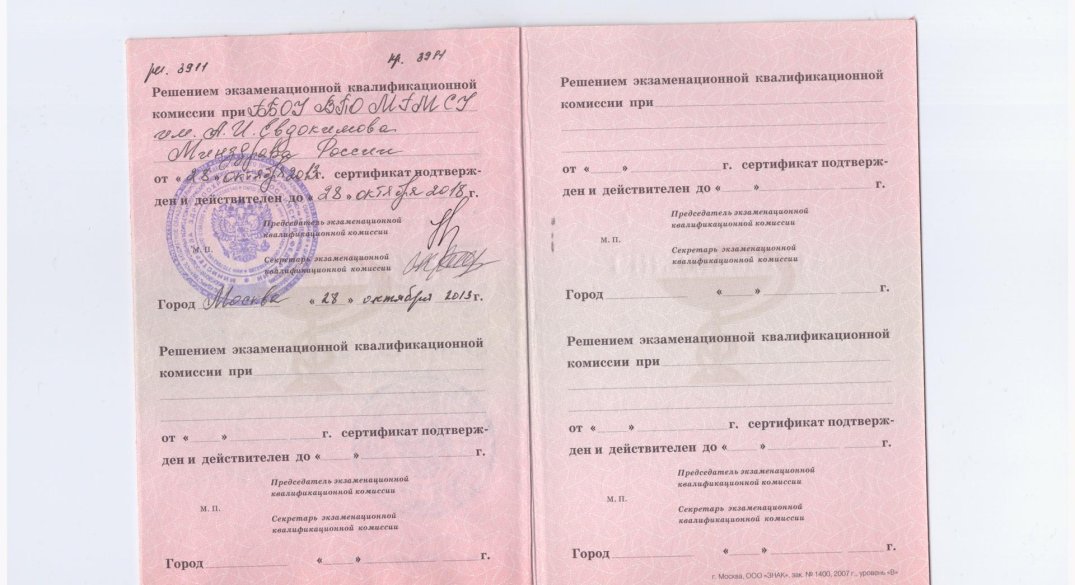 рег. 3911
пр. 3911
Решением экзаменационной квалификационной
комиссии при ГБОУ ВПО МГМСУ
им. А.И. Евдокимова
Минздрава России
от « 28 » октября 2013 г. сертификат подтверж-
ден и действителен до « 28 » октября 2018 г.
Председатель экзаменационной
квалификационной комиссии
М. П.
Секретарь экзаменационной
квалификационной комиссии
Город Москва « 28 » октября 2013 г.
Решением экзаменационной квалификационной
комиссии при
от « » г. сертификат подтверж-
ден и действителен до « » г.
Председатель экзаменационной
квалификационной комиссии
М. П.
Секретарь экзаменационной
квалификационной комиссии
Город « » г.
Решением экзаменационной квалификационной
комиссии при
от « » г. сертификат подтверж-
ден и действителен до « » г.
Председатель экзаменационной
квалификационной комиссии
М. П.
Секретарь экзаменационной
квалификационной комиссии
Город « » г.
Решением экзаменационной квалификационной
комиссии при
от « » г. сертификат подтверж-
ден и действителен до « » г.
Председатель экзаменационной
квалификационной комиссии
М. П.
Секретарь экзаменационной
квалификационной комиссии
Город « » г.
г. Москва, ООО «ЗНАК», зак. № 1400, 2007 г., уровень «В»